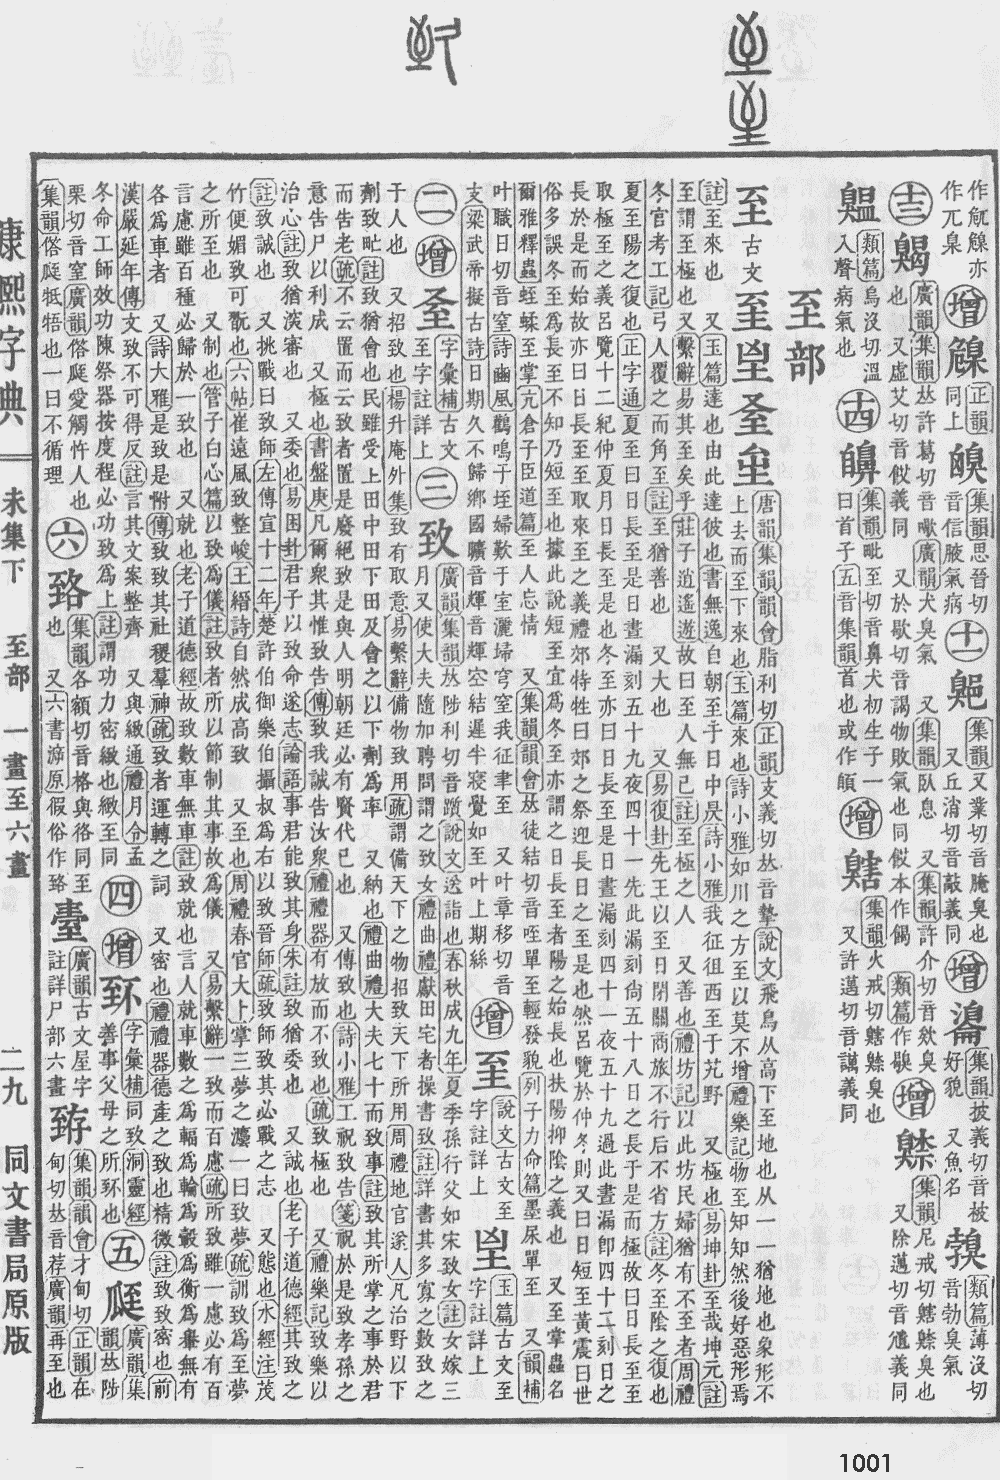 增
正韻
同上
集韻思晉切
音信腋氣病
十一
集韻
又業切音腌臭也
又丘消切音敲義同
增
集韻披義切音被
好貌 又魚名
類篇薄沒切
音勃臭氣
十三
廣韻集韻𠀤許葛切音
也 又虛艾切音
廣韻犬臭氣 又集韻臥息 又集韻許介切音欸臭
義同 又於歇切音謁物敗氣也同
類篇烏沒切溫
入聲病氣也
十四
集韻毗至切音鼻犬初生子一
曰首子五音集韻首也或作
增
集韻火戒切
又許邁切音講義同
增
集韻尼戒切
又除邁切音
至部
至
古文
唐韻集韻韻會脂利切正韻支義切𠀤音摯說文飛鳥從高下至地也从一一猶地也象形不
上去而至下來也玉篇來也詩小雅如川之方至以莫不增禮樂記物至知知然後好惡形焉
註至來也 又玉篇達也由此達彼也書無逸自朝至于日中昃詩小雅我征徂西至于艽野 又極也易坤卦至哉坤元註
至謂至極也又繫辭易其至矣乎莊子逍遙遊故曰至人無己註至極之人 又善也禮坊記以此坊民婦猶有不至者周禮
冬官考工記弓人覆之而角至註至猶善也 又大也 又易復卦先王以至日閉關商旅不行后不省方註冬至陰之復也
夏至陽之復也正字通夏至日長至是日晝漏刻五十九夜四十一先此漏刻尙五十八日之長于是而極故曰日長至至
取極至之義呂覽十二紀仲夏月日長至是也冬至亦曰日長至是日晝漏刻四十一夜五十九過此晝漏卽四十二刻日之
長於是而始故亦曰日長至至取來至之義禮郊特牲曰郊之祭迎長日之至是也然呂覽於仲冬則又曰日短至黃震曰世
俗多誤冬至爲長至不知乃短至也據此說短至宜爲冬至亦謂之日長至者陽之始長也扶陽抑陰之義也 又至掌蟲名
爾雅釋蟲蛭蝚至掌亢倉子臣道篇至人忘情 又集韻韻會𠀤徒結切音咥單至輕發貌列子力命篇墨杘單至 又韻補
叶職日切音窒詩豳風鸛鳴于垤婦歎于室灑埽穹窒我征聿至 又叶章移切音
支梁武帝擬古詩日期久不歸鄕國曠音輝音輝空結遲半寢覺如至叶上期絲
增
至
說文古文至
字註詳上
玉篇古文至
字註詳上
二
增
字彙補古文
至字註詳上
三
致
廣韻集韻𠀤陟利切音躓說文送詣也春秋成九年夏季孫行父如宋致女註女嫁三
月又使大夫隨加聘問謂之致女禮曲禮獻田宅者操書致註詳書其多寡之數致之
于人也 又招致也楊升庵外集致有取意易繫辭備物致用疏謂備天下之物招致天下所用周禮地官遂人凡治野以下
劑致甿註致猶會也民雖受上田中田下田及會之以下劑爲率 又納也禮曲禮大夫七十而致事註致其所掌之事於君
而告老疏不云置而云致者置是廢絕致是與人明朝廷必有賢代己也 又傳致也詩小雅工祝致告箋祝於是致孝孫之
意告尸以利成 又極也書盤庚凡爾眾其惟致告傳致我誠告汝眾禮禮器有放而不致也疏致極也 又禮樂記致樂以
治心註致猶深審也 又委也易困卦君子以致命遂志論語事君能致其身朱註致猶委也 又誠也老子道德經其致之
註致誠也 又挑戰曰致師左傳宣十二年楚許伯御樂伯攝叔爲右以致晉師疏致師致其必戰之志 又態也水經注茂
竹便娟致可翫也六帖崔遠風致整峻王縉詩自然成高致 又至也周禮春官大卜掌三夢之灋一曰致夢疏訓致爲至夢
之所至也 又制也管子白心篇以致爲儀註致者所以節制其事故爲儀 又易繫辭一致而百慮疏所致雖一慮必有百
言慮雖百種必歸於一致也 又就也老子道德經故致數車無車註致就也言人就車數之爲輻爲輪爲轂爲衡爲轝無有
各爲車者 又詩大雅是致是附傳致致其社稷羣神疏致者運轉之詞 又密也禮禮器德產之致也精微註致致密也前
漢嚴延年傳文致不可得反註言其文案整齊 又與緻通禮月令孟
冬命工師效功陳祭器按度程必功致爲上註謂功力密緻也緻至同
四
增
字彙補同致洞靈經
善事父母之所䎡也
五
廣韻集韻𠀤陟
栗切音窒廣韻㑛庢愛觸忤人也
集韻㑛庢牴牾也一曰不循理
六
臵
集韻各額切音格與㣟同至
也 又六書溯原假俗作臵
臺
廣韻古文屋字
註詳尸部六畫
臶
集韻韻會才甸切正韻在
甸切𠀤音荐廣韻再至也
康熙字典
未集下
至部
一畫至六畫
二九
同文書局原版
1001